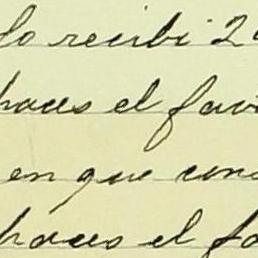 lo recibi 2
haces el fav
en que con
haces el fa